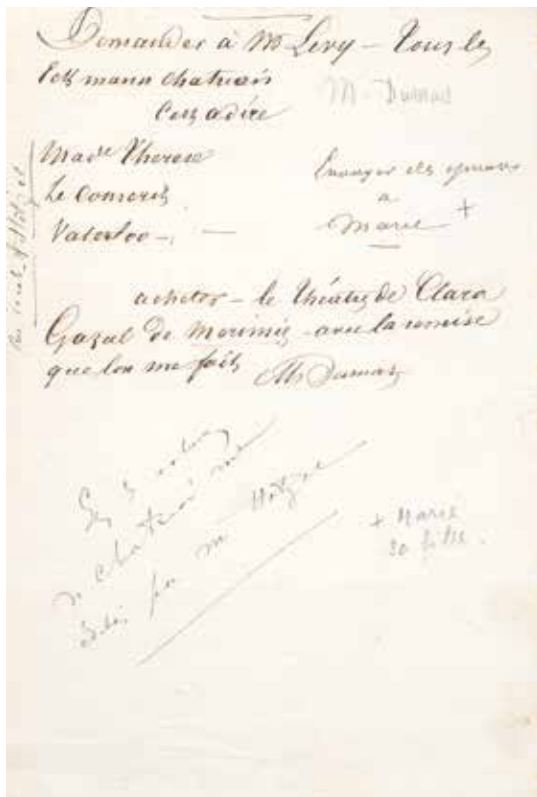 Demander à Mr Levy – tous les
Eckmann Chatrian
C'est à dire
M. Dumas
Made Therese
Le Conscrit
Vaterloo –
Envoyer des epreuves
a
Marie +
acheter – le théatre de Clara
Gazul de Merimée – avec la remise
que l'on me fait Al Dumas
de Chatrian
par M Hetzel
+ Marie
sa fille.